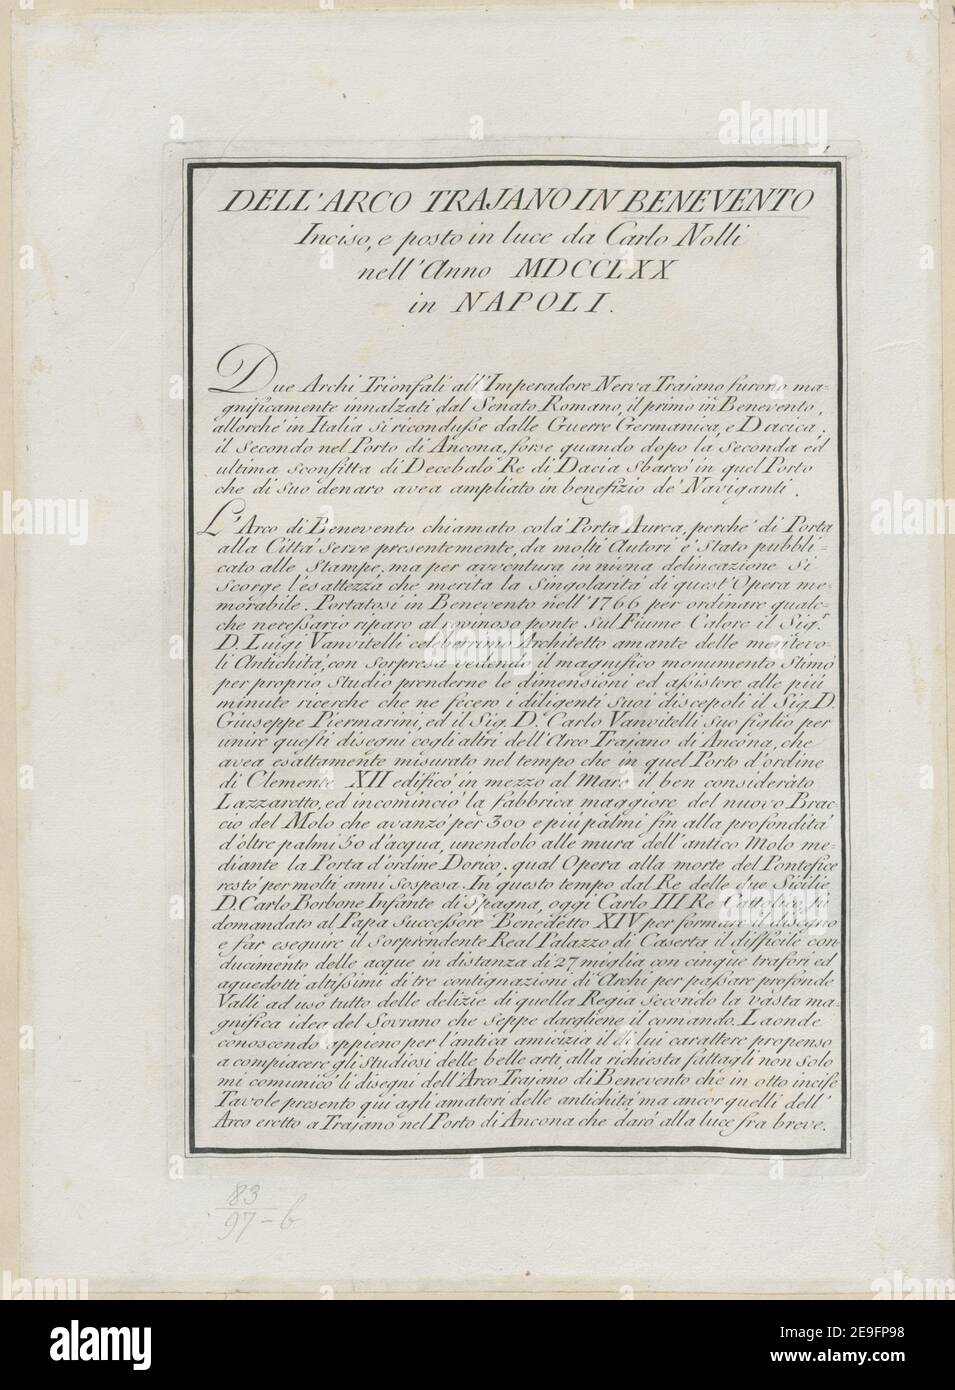 DELL'ARCO TRAJANO IN BENEVENTO
Inciso, e posto in luce da Carlo Nolli
nell'Anno MDCCLXX
in NAPOLI.
Due Archi Trionfali all'Imperadore Nerva Trajano furono ma-
gnificamente innalzati dal Senato Romano, il primo in Benevento,
allorche in Italia si ricondusse dalle Guerre Germanica, e Dacica,
il secondo nel Porto di Ancona, forse quando dopo la seconda ed
ultima sconfitta di Decebalo Re di Dacia sbarcò in quel Porto
che di suo denaro avea ampliato in benefizio de' Naviganti.
L'Arco di Benevento chiamato colà Porta Aurea, perchè di Porta
alla Città serve presentemente, da molti Autori è stato pubbli-
cato alle Stampe, ma per avventura in niuna delineazione si
scorge l'esattezza che merita la singolarità di quest'Opera me-
morabile. Portatosi in Benevento nell'1766 per ordinare qual-
che necessario riparo al rovinoso ponte sul Fiume Calore il Sig.r
D. Luigi Vanvitelli celeberrimo Architetto amante delle meritevo-
li Antichità, con sorpresa vedendo il magnifico monumento stimò
per proprio studio prenderne le dimensioni ed assistere alle più
minute ricerche che ne fecero i diligenti suoi discepoli il Sig. D.
Giuseppe Piermarini, ed il Sig. D. Carlo Vanvitelli suo figlio per
unire questi disegni cogli altri dell'Arco Trajano di Ancona, che
avea esattamente misurato nel tempo che in quel Porto d'ordine
di Clemente XII edificò in mezzo al Mare il ben considerato
Lazzaretto, ed incominciò la fabbrica maggiore del nuovo Brac-
cio del Molo che avanzò per 300 e più palmi fin alla profondità
d'oltre palmi 50 d'acqua, unendolo alle mura dell'antico Molo me-
diante la Porta d'ordine Dorico, qual Opera alla morte del Pontefice
restò per molti anni sospesa. In questo tempo dal Re delle due Sicilie
D. Carlo Borbone Infante di Spagna, oggi Carlo III Re Cattolico, fù
domandato al Papa successore Benedetto XIV per formare il disegno
e far eseguire il sorprendente Real Palazzo di Caserta il difficile con-
ducimento delle acque in distanza di 27 miglia con cinque trafori ed
aquedotti altissimi di tre contignazioni di Archi per passare profonde
Valli ad uso tutto delle delizie di quella Regia secondo la vasta ma-
gnifica idea del Sovrano che seppe dargliene il comando. Laonde
conoscendo appieno per l'antica amicizia il di lui carattere propenso
a compiacere gli studiosi delle belle arti, alla richiesta fattagli non solo
mi comunicò li disegni dell'Arco Trajano di Benevento che in otto incise
Tavole presento quì agli amatori delle antichità ma ancor quelli dell'
Arco eretto a Trajano nel Porto di Ancona che darò alla luce fra breve.
83
97-b
alamy
Image ID: 2E9FP98
www.alamy.com